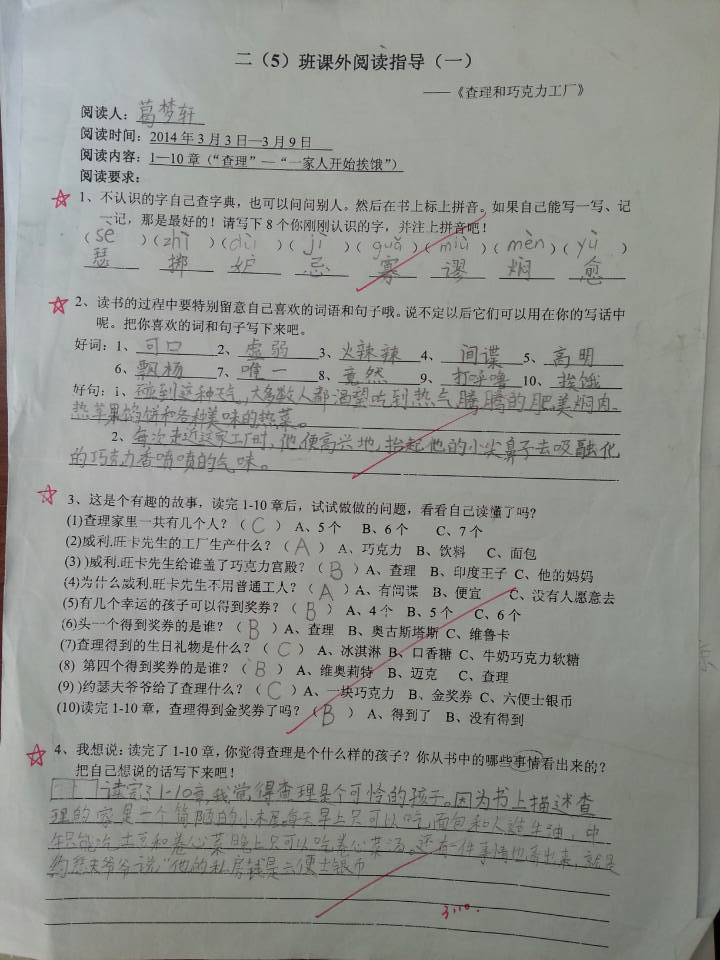 二（5）班课外阅读指导（一）
——《查理和巧克力工厂》
阅读人：葛梦轩
阅读时间：2014年3月3日—3月9日
阅读内容：1—10章（“查理”—“一家人开始挨饿”）
阅读要求：
1、不认识的字自己查字典，也可以问问别人。然后在书上标上拼音。如果自己能写一写、记
一记，那是最好的！请写下8个你刚刚认识的字，并注上拼音吧！
（sè）（zhì）（dù）（jì）（guǎ）（miù）（mèn）（yù）
瑟 掷 妒 忌 寡 谬 焖 愈
2、读书的过程中要特别留意自己喜欢的词语和句子哦。说不定以后它们可以用在你的写话中
呢。把你喜欢的词和句子写下来吧。
好词：1、可口 2、虚弱 3、火辣辣 4、间谍 5、高明
6、飘扬 7、唯一 8、竟然 9、打呼噜 10、挨饿
好句：1、碰到这种天气，大多数人都渴望吃到热气腾腾的肥美焖肉、
热苹果馅饼和各种美味的热菜。
2、每次走近这家工厂时，他便高兴地，抬起他的小尖鼻子去吸融化
的巧克力香喷喷的气味。
3、这是个有趣的故事，读完1-10章后，试试做做的问题，看看自己读懂了吗?
(1)查理家里一共有几个人？（C） A、5个 B、6个 C、7个
(2)威利.旺卡先生的工厂生产什么？（A） A、巧克力 B、饮料 C、面包
(3) )威利.旺卡先生给谁盖了巧克力宫殿？（B）A、查理 B、印度王子 C、他的妈妈
(4)为什么威利.旺卡先生不用普通工人？（A）A、有间谍 B、便宜 C、没有人愿意去
(5)有几个幸运的孩子可以得到奖券？（B） A、4个 B、5个 C、6个
(6)头一个得到奖券的是谁？（B）A、查理 B、奥古斯塔斯 C、维鲁卡
(7)查理得到的生日礼物是什么？（C） A、冰淇淋 B、口香糖 C、牛奶巧克力软糖
(8) 第四个得到奖券的是谁？（B） A、维奥莉特 B、迈克 C、查理
(9) )约瑟夫爷爷给了查理什么？（C）A、一块巧克力 B、金奖券 C、六便士银币
(10)读完1-10章，查理得到金奖券了吗？（B） A、得到了 B、没有得到
4、我想说：读完了1-10章，你觉得查理是个什么样的孩子？你从书中的哪些事情看出来的？
把自己想说的话写下来吧！
读完了1-10章，我觉得查理是个可怜的孩子。因为书上描述查
理的家是一个简陋的小木屋，每天早上只可以吃面包和人造牛油，中
午只能吃土豆和卷心菜，晚上只可以吃卷心菜汤。还有一件事情也看出来，就是
约瑟夫爷爷说“他的私房钱是六便士银币
3.10.